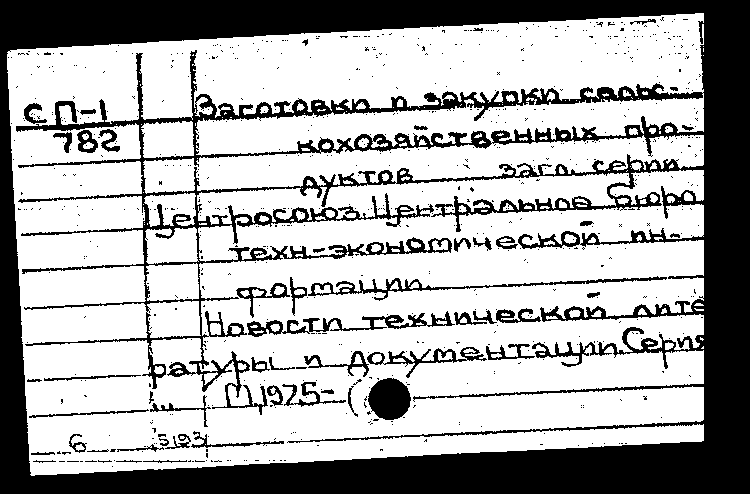 СП-1
782
Заготовки и закупки сельс-
кохозяйственных про-
дуктов загл. серии
Центросоюз. Центральное Бюро
техн-экономической ин-
формации.
Новости технической лите
ратуры и документации. Серия
... М, 1975- (
6 5193